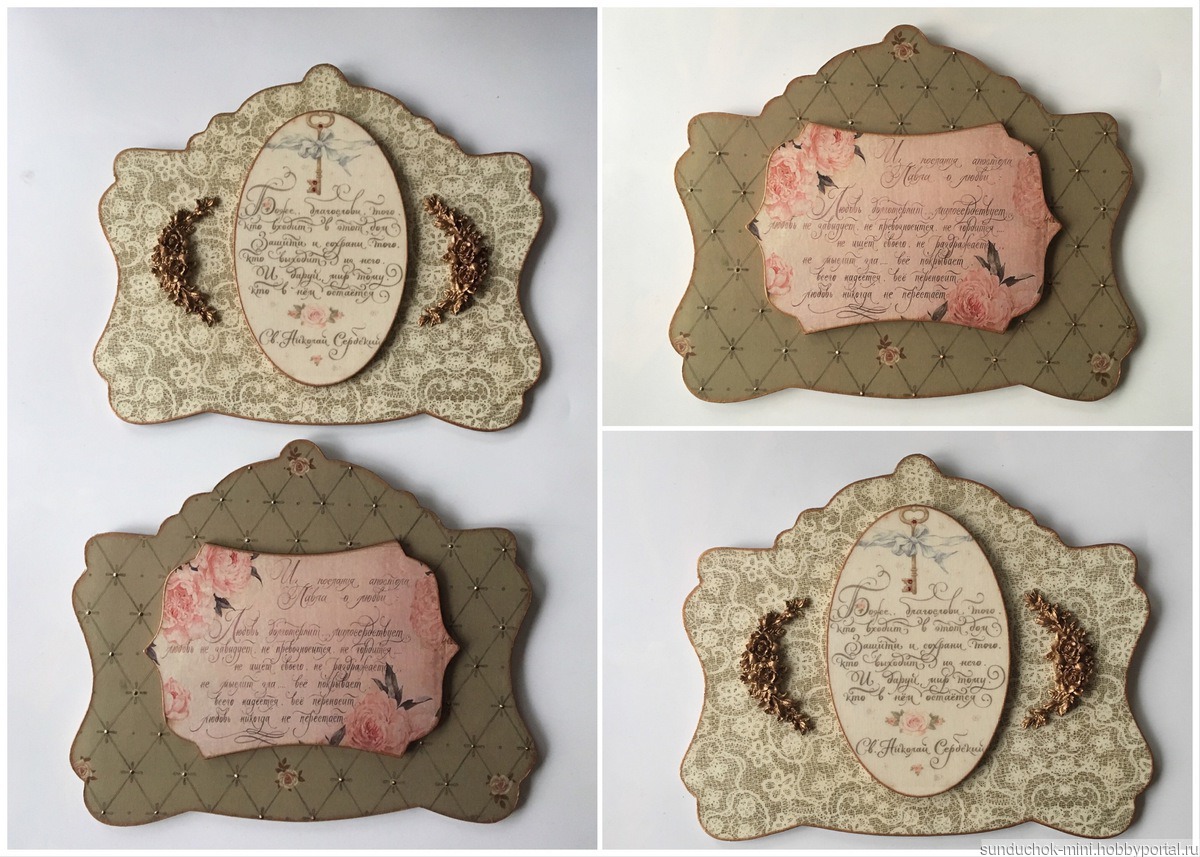 Боже, благослови того,
кто входит в этот дом
Защити и сохрани того,
кто выходит из него.
И даруй мир тому
кто в нём остаётся
Св. Николай Сербский
Из послания апостола
Павла о любви
Любовь долготерпит, милосердствует,
любовь не завидует, не превозносится, не гордится...
не ищет своего, не раздражается
не мыслит зла... всё покрывает
всего надеется, всё переносит
любовь никогда не перестаёт
Из послания апостола
Павла о любви
Любовь долготерпит, милосердствует,
любовь не завидует, не превозносится, не гордится...
не ищет своего, не раздражается
не мыслит зла... всё покрывает
всего надеется, всё переносит
любовь никогда не перестаёт
Боже, благослови того,
кто входит в этот дом
Защити и сохрани того,
кто выходит из него.
И даруй мир тому
кто в нём остаётся
Св. Николай Сербский
sunduchok-mini.hobbyportal.ru